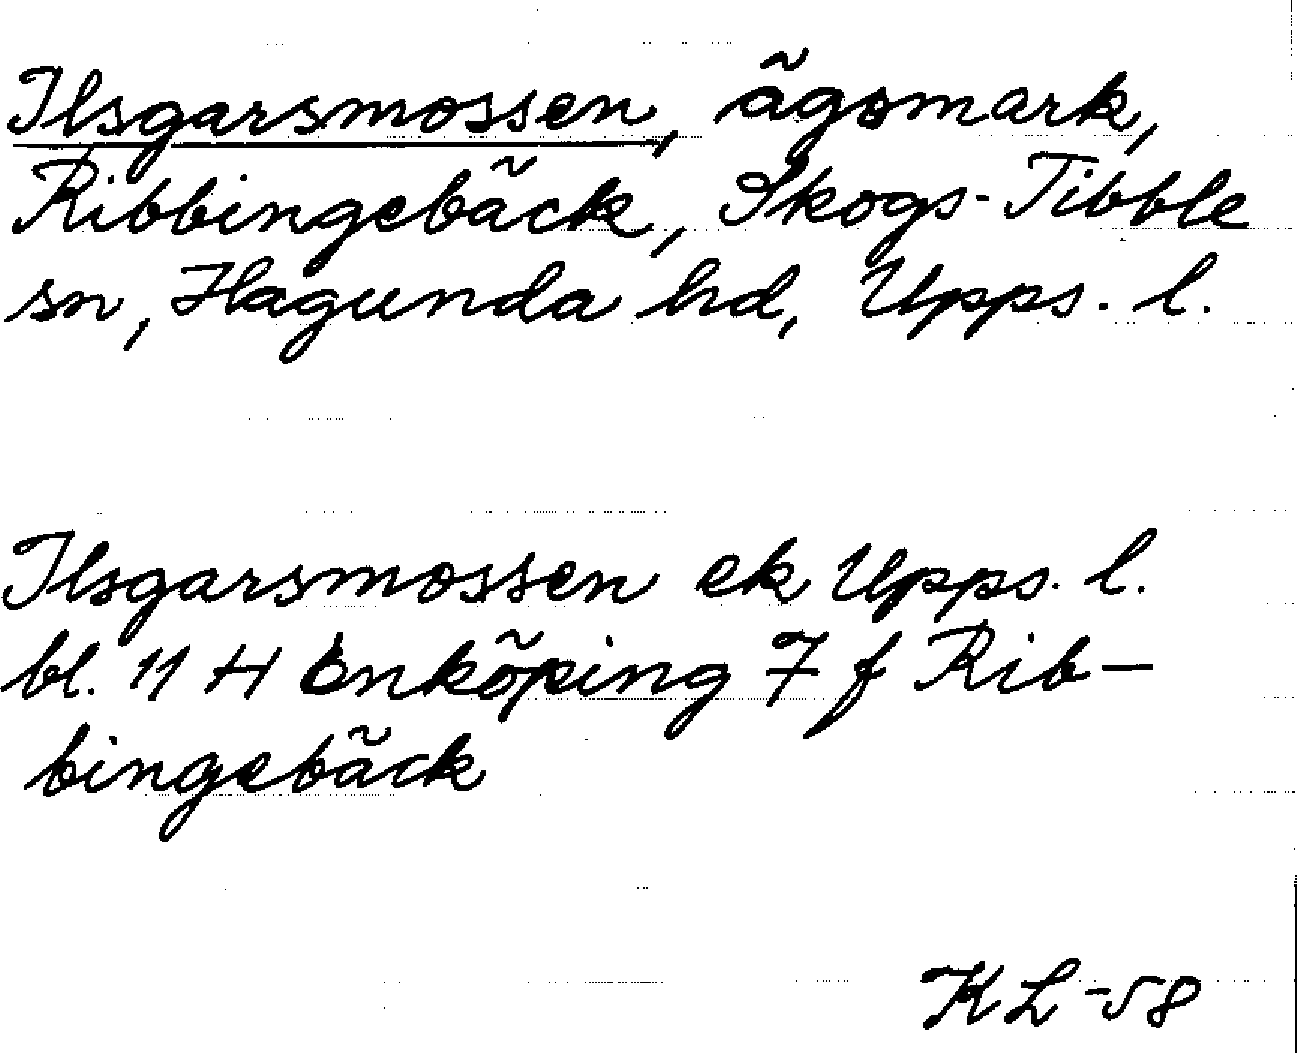 Ilsgarsmossen, ägomark,
Ribbingebäck, Skogs-Tibble
sn, Hagunda hd, Upps. l.
Ilsgarsmossen ek Upps. l.
bl. 11 H Enköping 7 f Rib-
bingebäck
KL -58